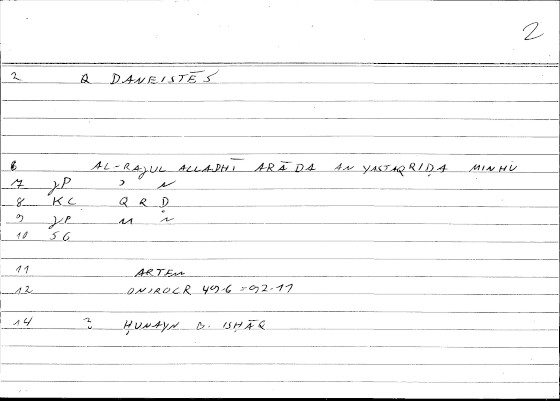 2
2 Q DANEISTĒS
6 AL-RAJUL ALLADHĪ ARĀDA AN YASTAQRIḌA MINHU
7 JP
8 KC Q R Ḍ
9 JP M N
10 SG
11 ARTEM
12 ONIROCR 49.6 = 92.11
14 ḤUNAYN B. ISḤĀQ